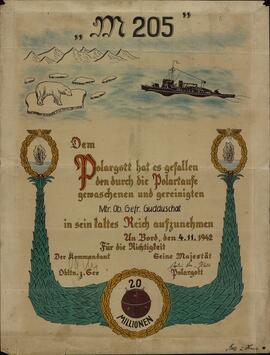 „M 205“
Dem
Polargott hat es gefallen
den durch die Polartaufe
gewaschenen und gereinigten
Mtr. Ob. Gefr. Gudduschat
in sein kaltes Reich aufzunehmen
An Bord, den 4.11.1942
Für die Richtigkeit
Der Kommandant Seine Majestät
Obltn. z. See Polargott
20
MILLIONEN